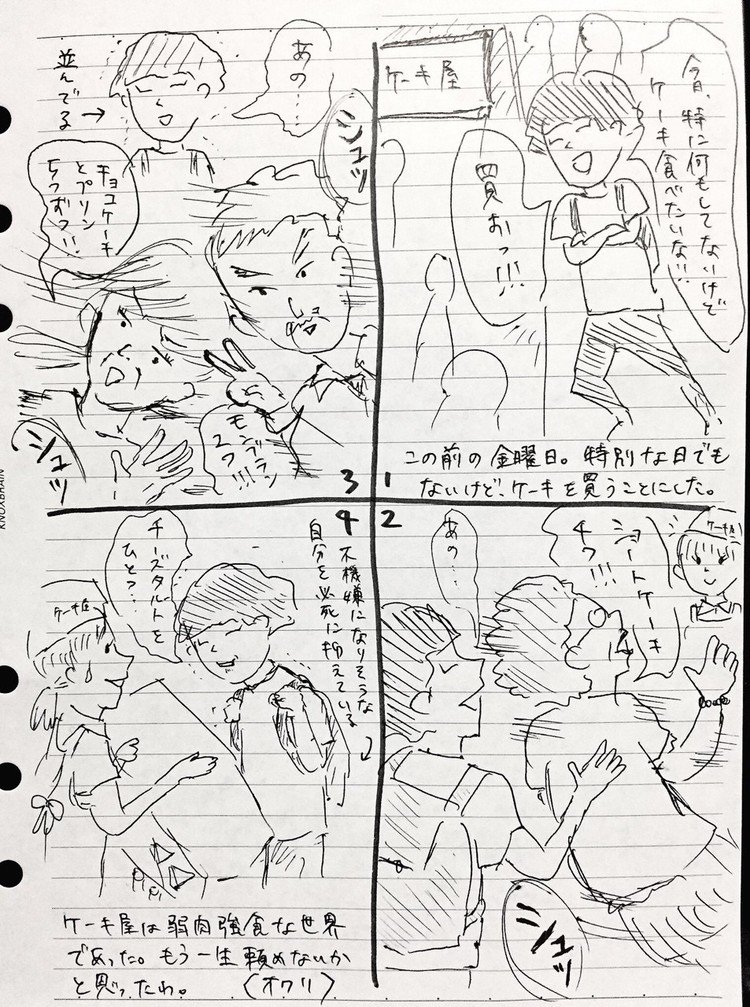 今日、特に何もしてないけど
ケーキ食べたいな!!
ケーキ屋
買おっ!!!
この前の金曜日。特別な日でも
ないけど、ケーキを買うことにした。
1
2
ケーキ屋
ショートケーキ
4つ!!!
あの…
シュッ
あの…
並んでる→
シュッ
チョコケーキ
とプリン
5つずつ!!
モンブラン
2つ!!!
シュッ
3
4
不機嫌になりそうな
自分を必死に抑えている
チーズタルトを
ひとつ…
ケーキ屋
ケーキ屋は弱肉強食な世界
であった。もう一生頼めないか
と思ったわ。 (オワリ)
KNOXBRAIN